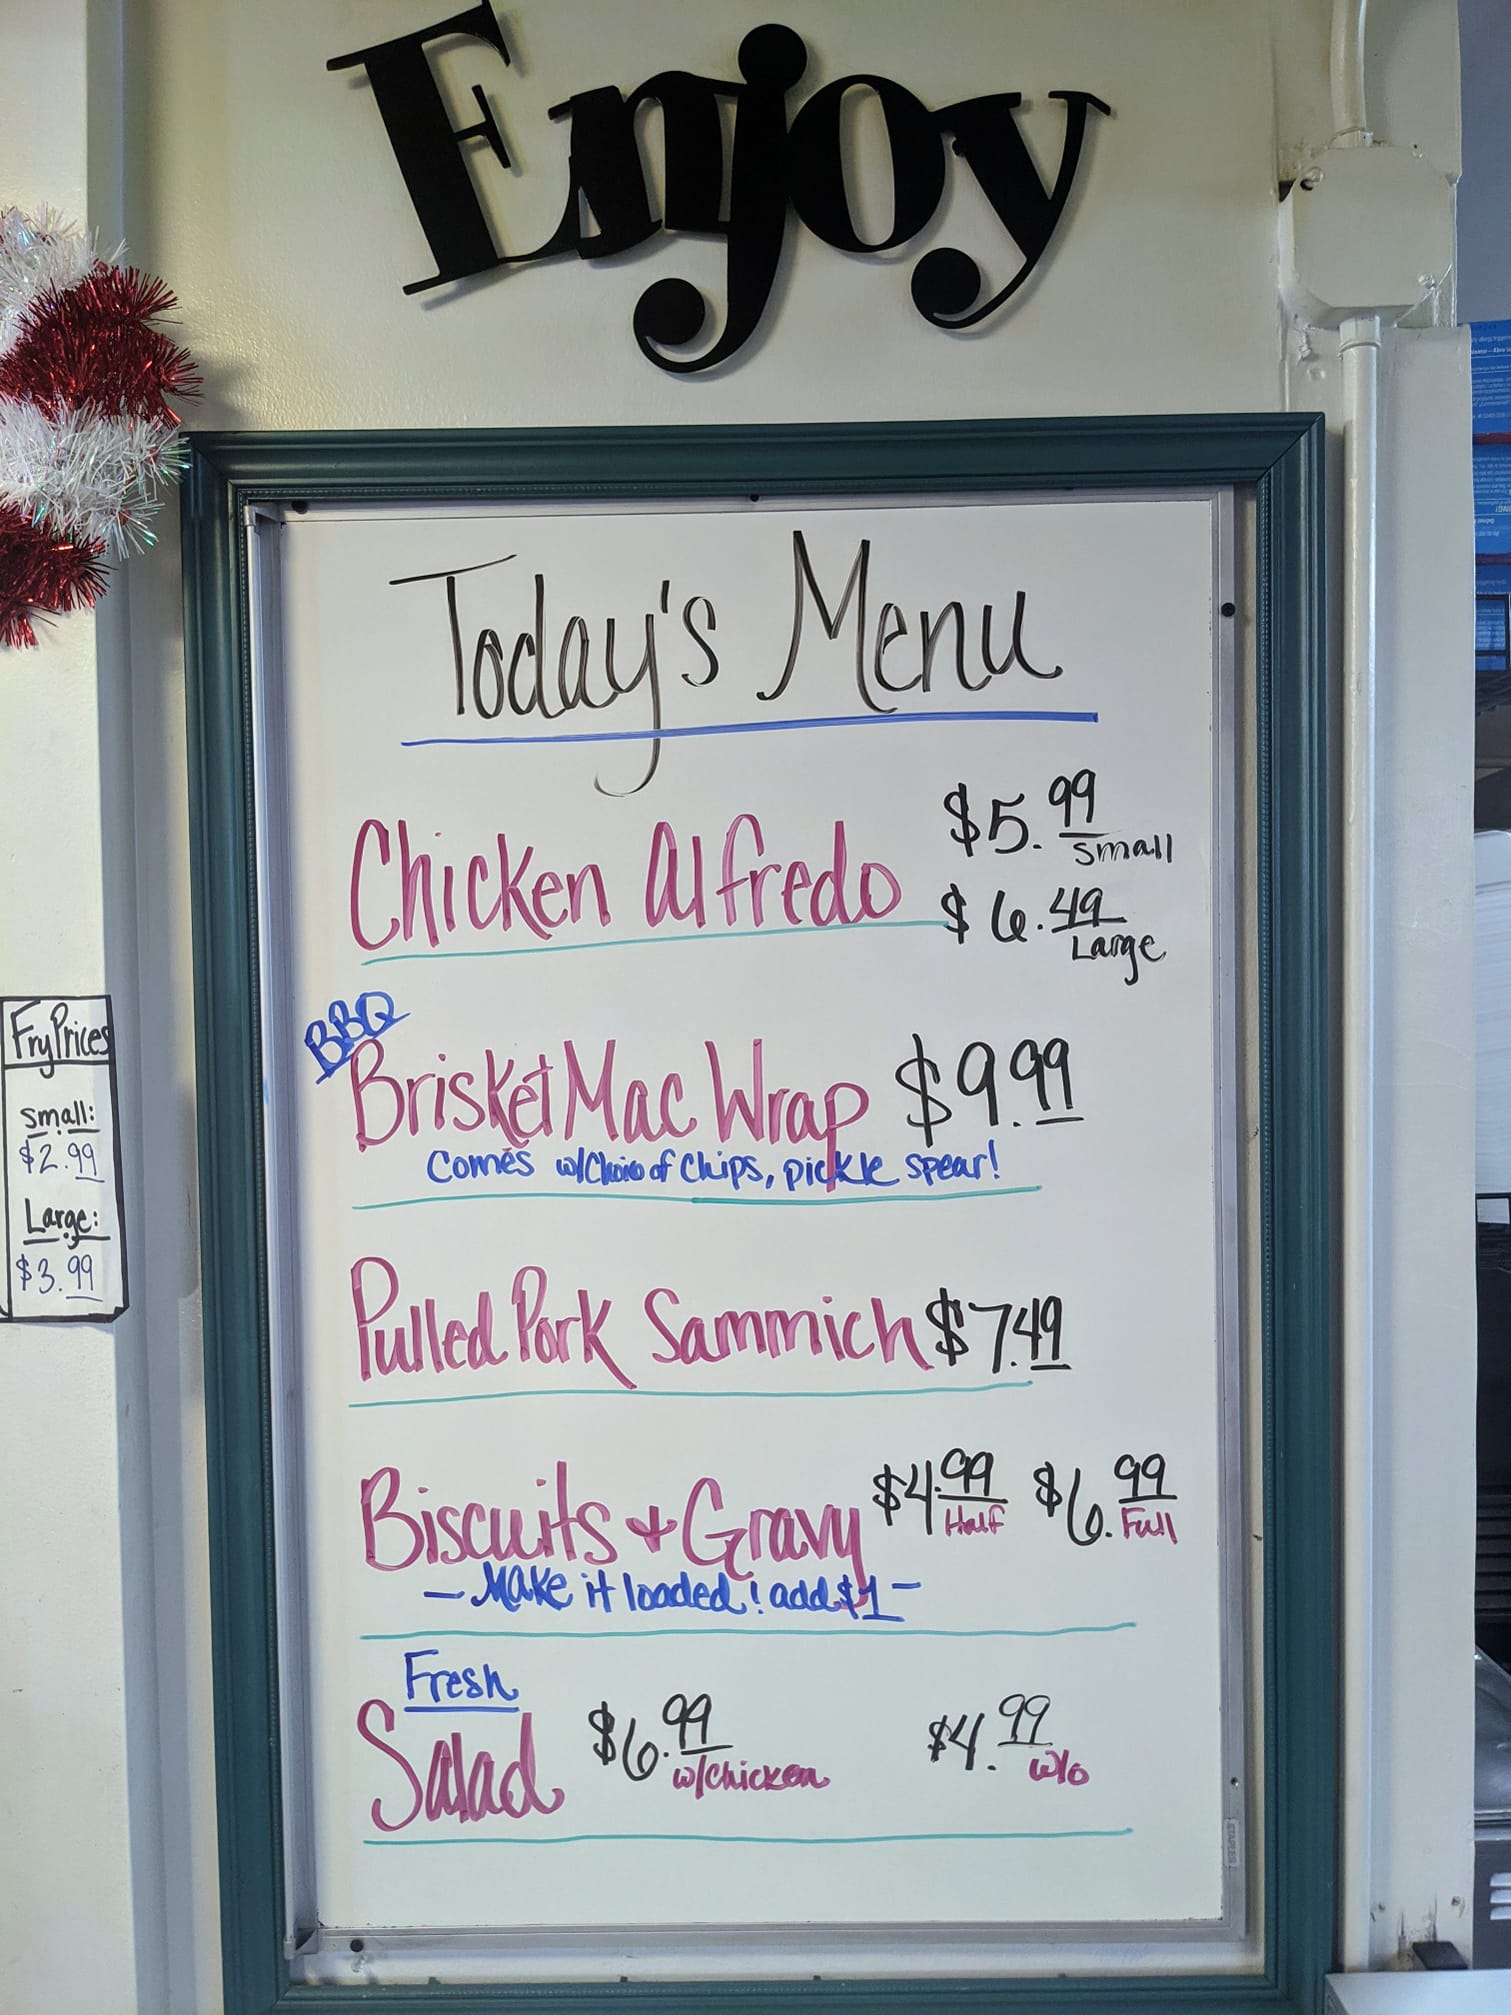 Enjoy
Today's Menu
Chicken Alfredo
$5.99
small
$6.49
Large
BBQ
Brisket Mac Wrap $9.99
Comes w/Choice of Chips, pickle spear!
Pulled Pork Sammich $7.49
Biscuits + Gravy $4.99 Half $6.99 Full
- Make it loaded! add $1 -
Fresh
Salad $6.99 w/chicken $4.99 w/o
Fry Prices
small:
$2.99
Large:
$3.99
STAPLES